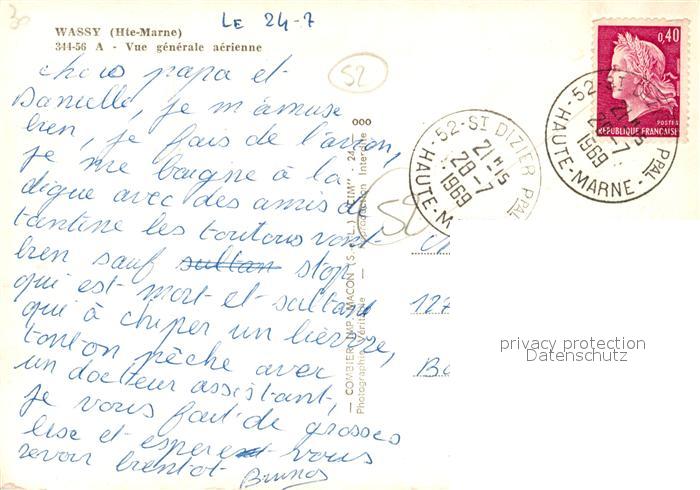 30
LE 24-7
WASSY (Hte-Marne)
344-56 A - Vue générale aérienne
52
chers papa et
Danielle, je m'amuse
bien, je fais de l'avion,
je me baigne à la
digue avec des amis de
tantine les toutous vont
bien sauf sultan stop
qui est mort et sultan
qui à chiper un lievre,
tonton pêche avec
un docteur assistant,
je vous fait de grosses
bise et espere vous
revoir bientot
Bruno
— COMBIER IMP. MACON (S.-&-L.) "CIM" — 24 —
Photographie Véritable - Reproduction Interdite
ooo
52
52-ST DIZIER PPAL
21H15
28-7
1969
HAUTE-M
52-ST
21H15
28-7
1969
PPAL
HAUTE-MARNE-
0,40
POSTES
REPUBLIQUE FRANCAISE
127
Ba
privacy protection
Datenschutz